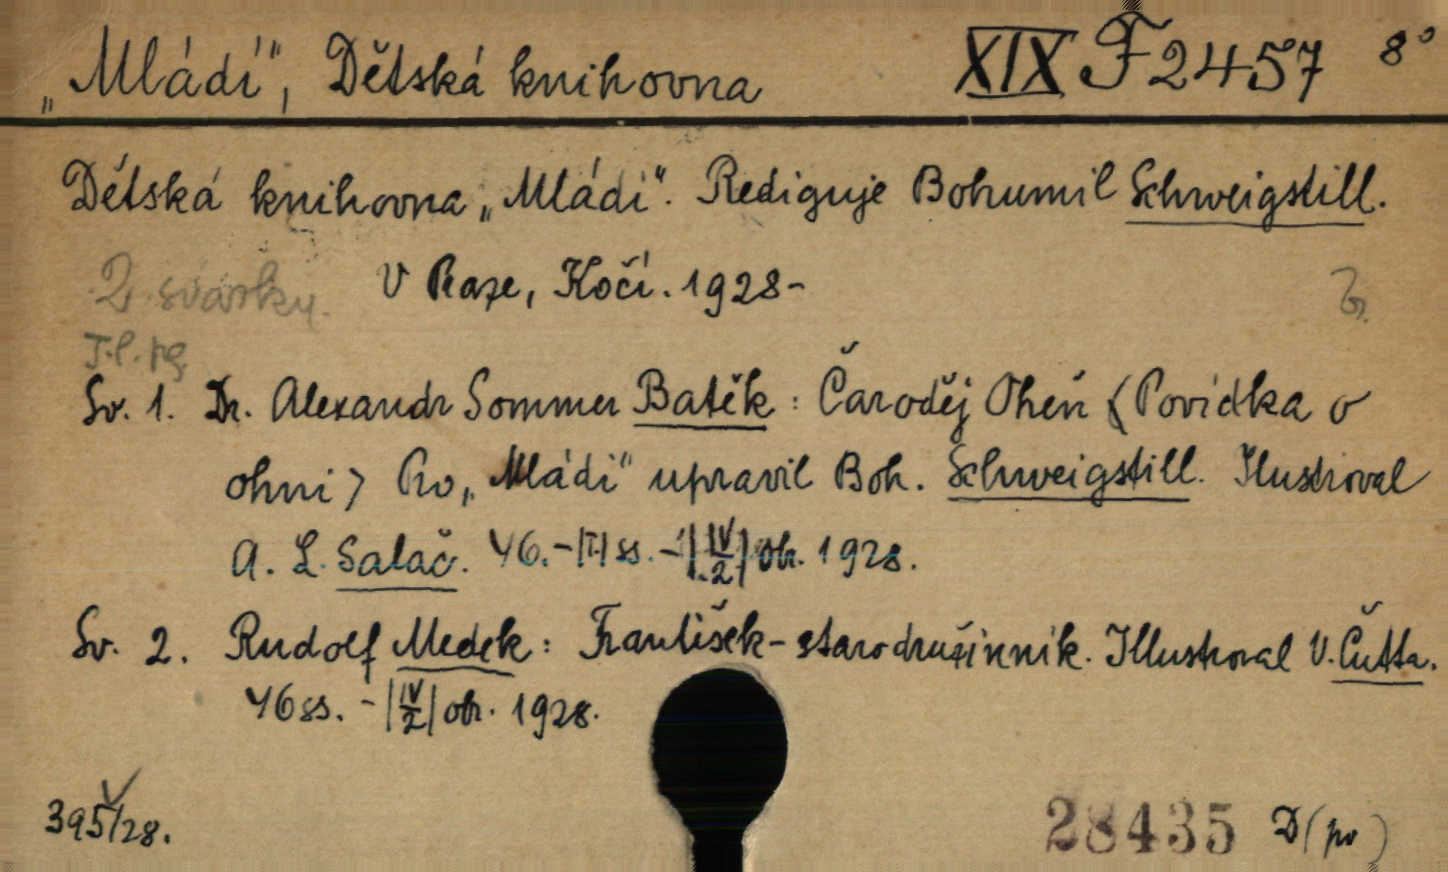 „Mládí", Dětská knihovna XIX F 2457 8°
Dětská knihovna „Mládí". Rediguje Bohumil Schweigstill.
2 svazky. V Praze, Kočí. 1928-
Sv. 1. Dr. Alexandr Sommer Batěk: Čaroděj Oheň (Povídka o
ohni) Pro „Mládí" upravil Boh. Schweigstill. Ilustroval
A. L. Salač. 46.-|I| ss. -|IV/2| obr. 1928.
Sv. 2. Rudolf Medek: František-starodružinník. Illustroval V. Čutta.
46 ss. -|IV/2| obr. 1928.
395/28. 28435 D (po)